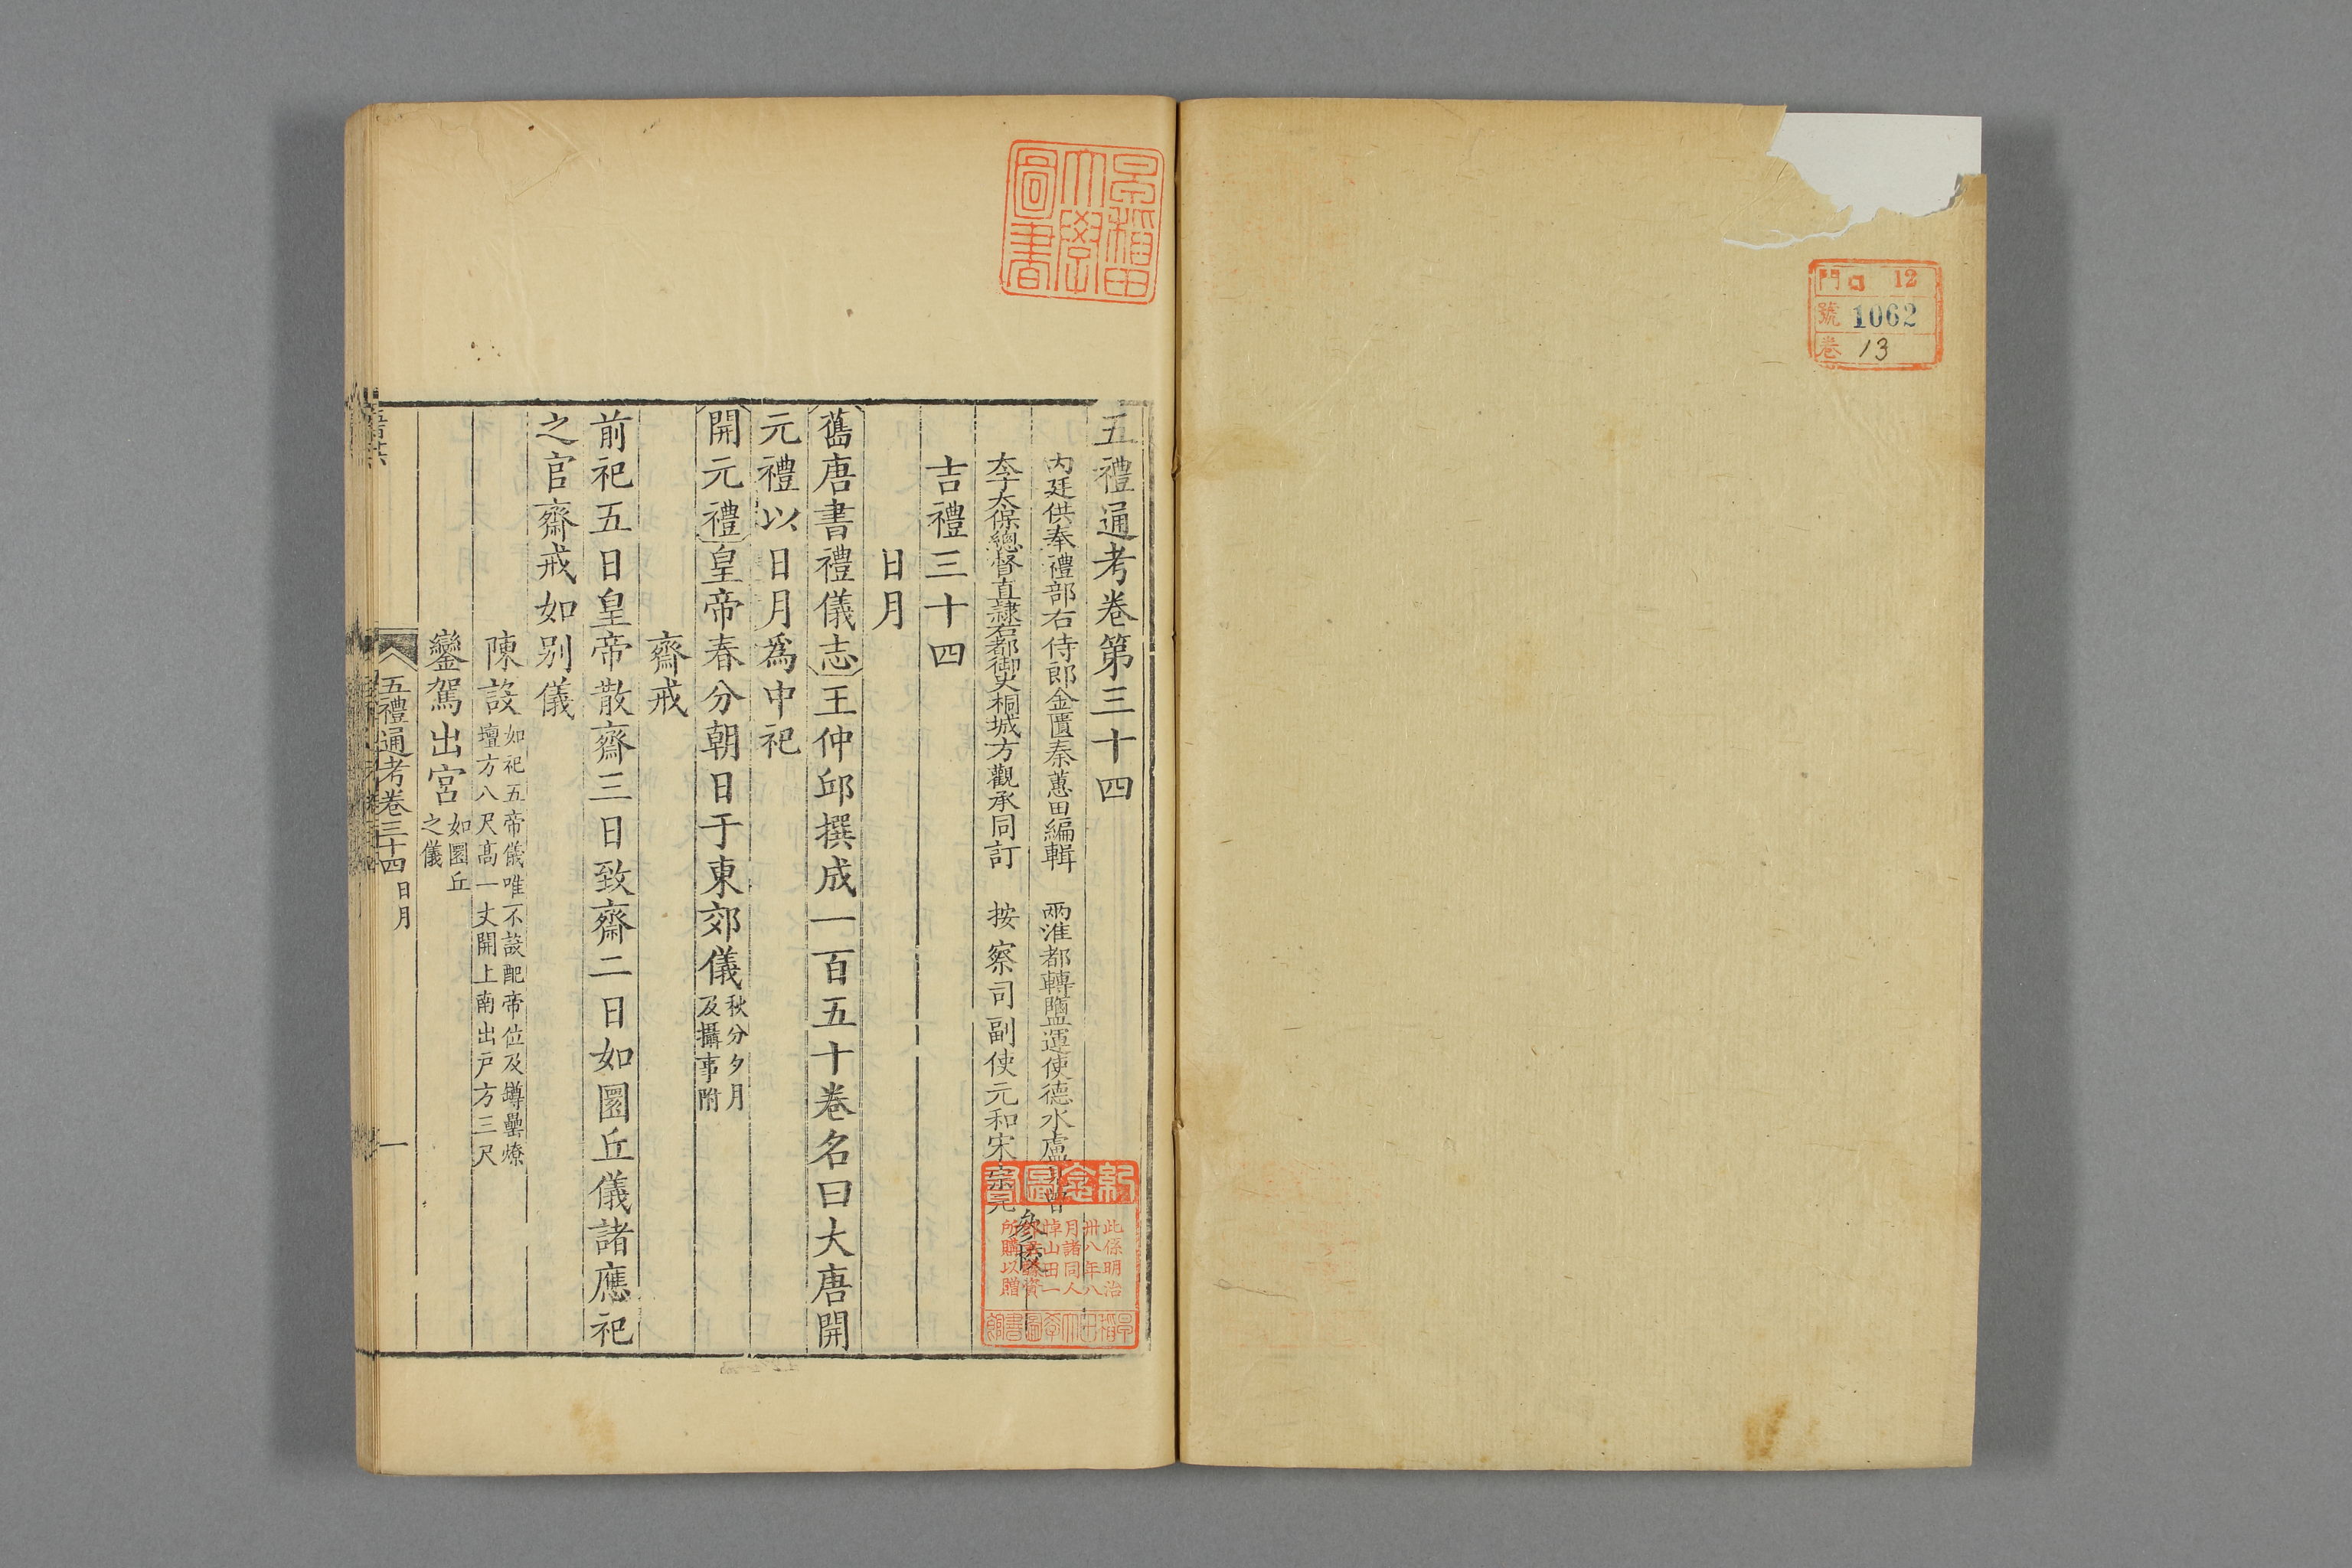 門 口 12
號 1062
卷 13
早稻田
大學
圖書
五禮通考卷第三十四
內廷供奉禮部右侍郎金匱秦蕙田編輯 兩淮都轉鹽運使德水盧
太子太保總督直隸右都御史桐城方觀承同訂 按察司副使元和宋宗元
參校
吉禮三十四
日月
舊唐書禮儀志王仲邱撰成一百五十卷名曰大唐開
元禮以日月爲中祀
開元禮皇帝春分朝日于東郊儀秋分夕月
及攝事附
齋戒
前祀五日皇帝散齋三日致齋二日如圜丘儀諸應祀
之官齋戒如別儀
陳設如祀五帝儀唯不設配帝位及罇罍燎
壇方八尺高一丈開上南出戶方三尺
鑾駕出宮如圜丘
之儀
五禮通考卷三十四 日月 一
此係明治
卅八年八
月諸同人
悼山田一
所購以贈
早稻田大學圖書館